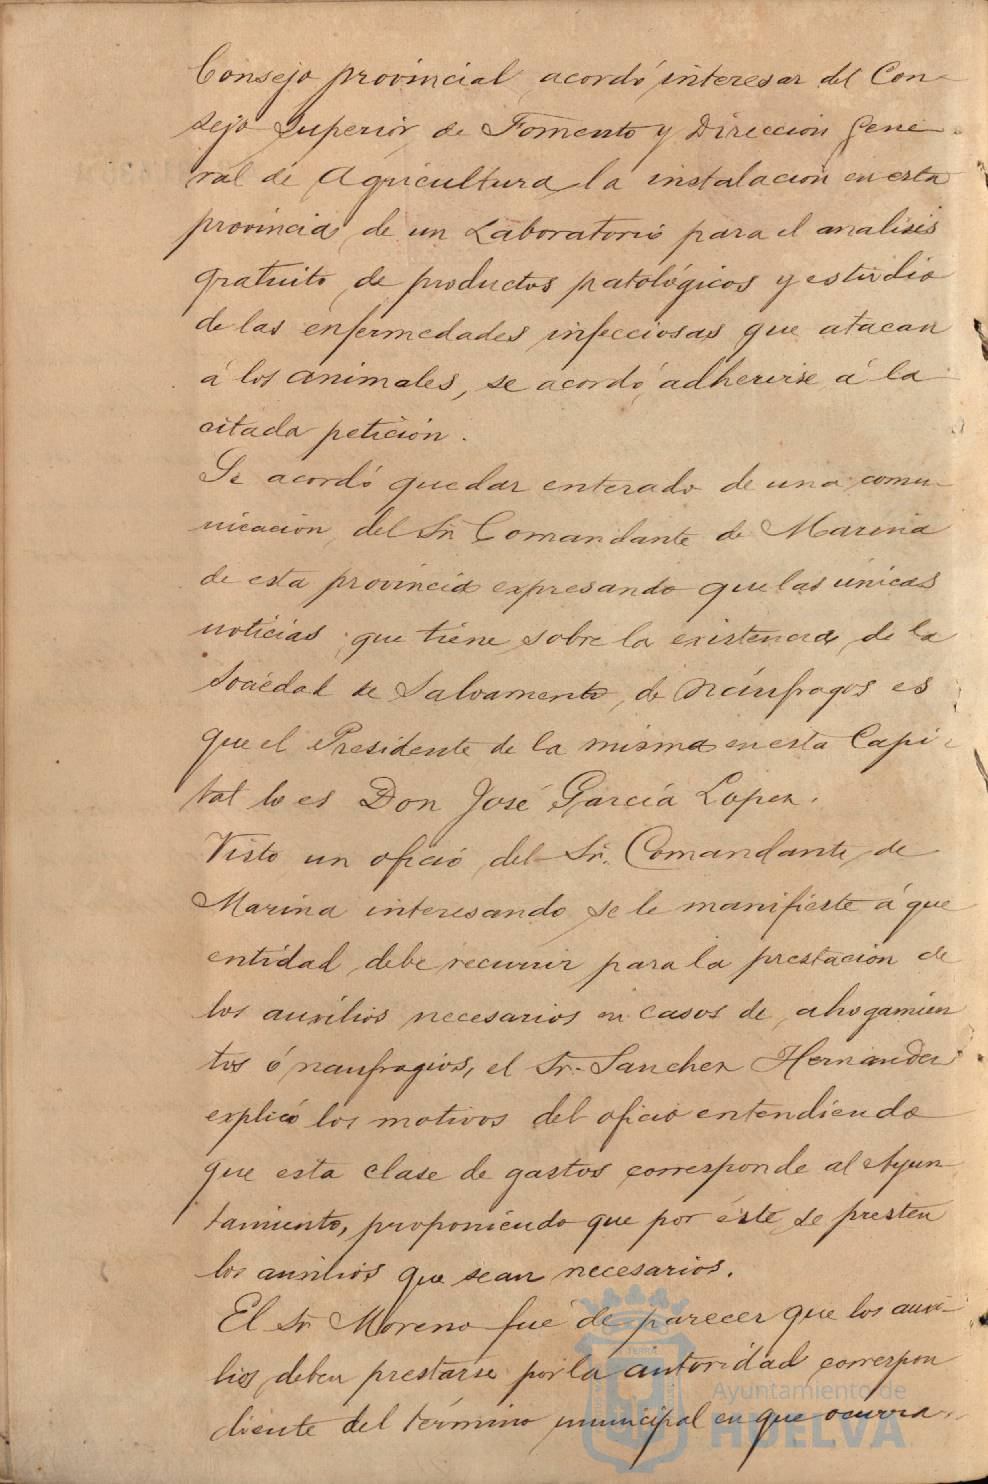 Consejo provincial, acordó interesar del Con-
sejo Superior de Fomento y Dirección Gene-
ral de Agricultura la instalación en esta
provincia de un Laboratorio para el analisis
gratuito de productos patológicos y estudio
de las enfermedades infecciosas que atacan
á los animales, se acordó adherirse á la
citada petición.
Se acordó quedar enterado de una comu-
nicación del Sr. Comandante de Marina
de esta provincia expresando que las únicas
noticias que tiene sobre la existencia de la
Sociedad de Salvamento de Náufragos es
que el Presidente de la misma en esta Capi-
tal lo es Don José García Lopez.
Visto un oficio del Sr. Comandante de
Marina interesando se le manifieste á que
entidad debe recurrir para la prestación de
los auxilios necesarios en casos de ahogamien
tos ó naufragios, el Sr. Sanchez Hernandez
explicó los motivos del oficio entendiendo
que esta clase de gastos corresponde al Ayun-
tamiento, proponiendo que por éste se presten
los auxilios que sean necesarios.
El Sr. Moreno fué de parecer que los auxi-
lios deben prestarse por la autoridad correspon
diente del término municipal en que ocurra
Ayuntamiento de
HUELVA